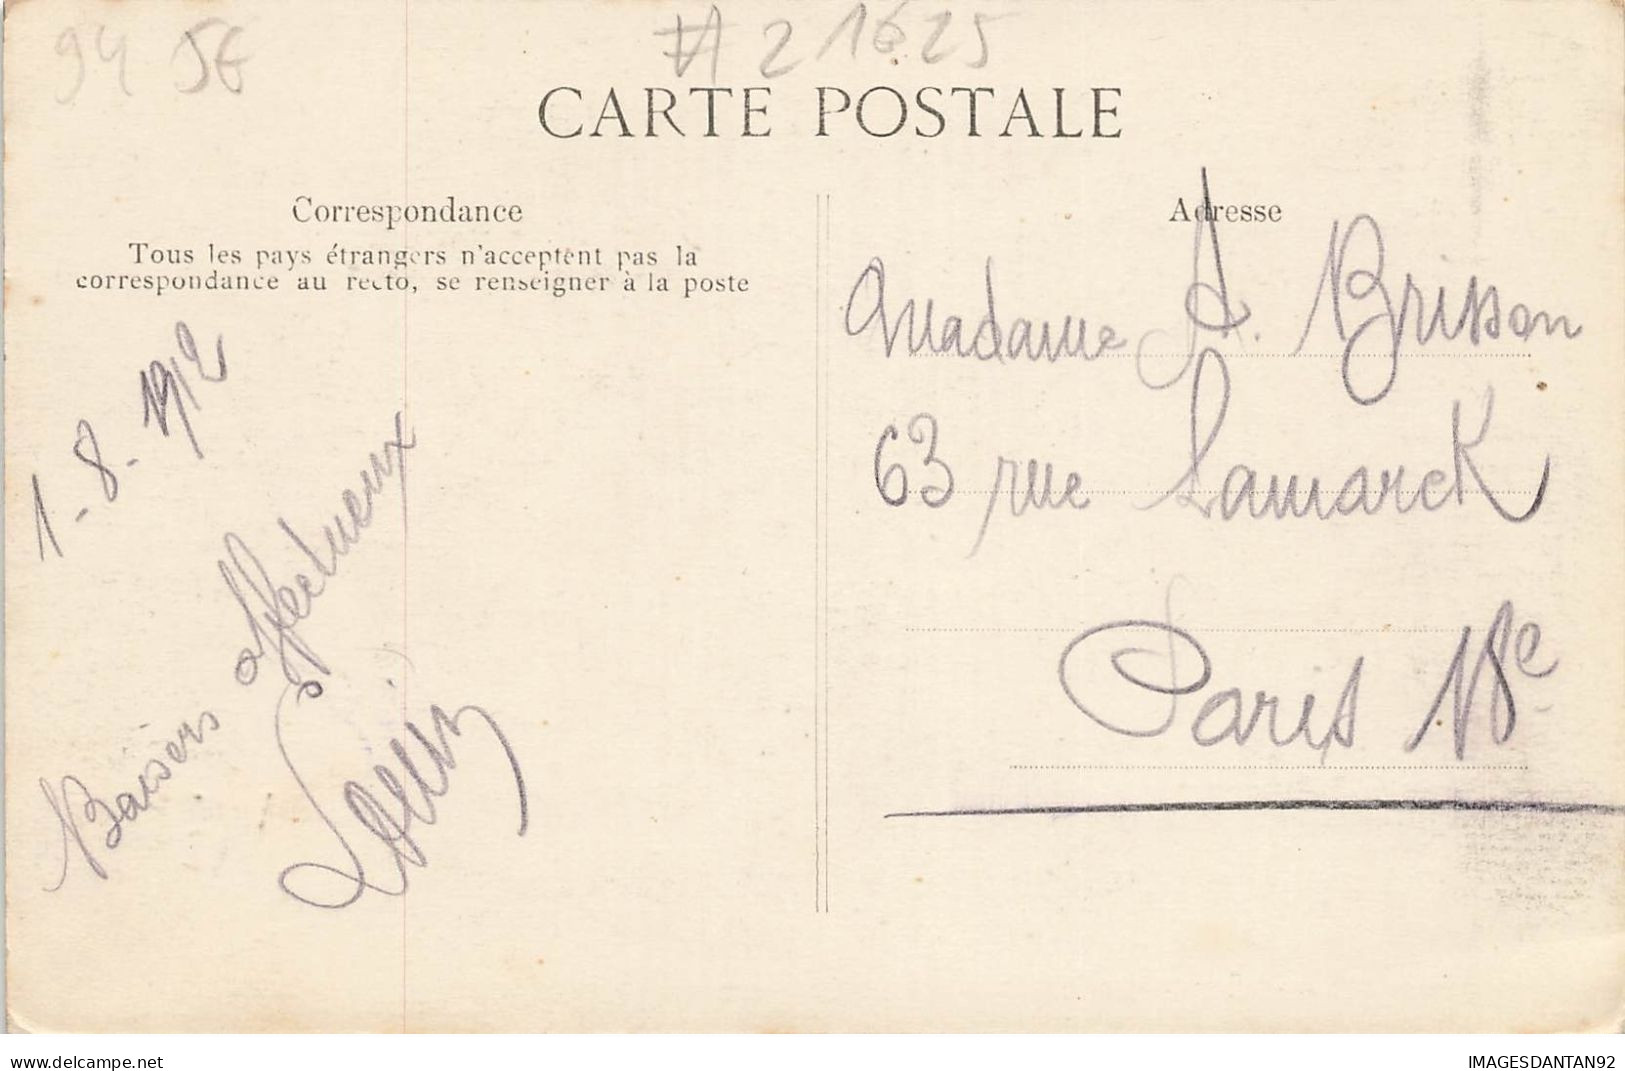 94 5€
#21625
CARTE POSTALE
Correspondance
Tous les pays étrangers n'acceptent pas la
correspondance au recto, se renseigner à la poste
1-8-1912
Baisers affectueux
Adresse
Madame A. Brisson
63 rue Lamarck
Paris 18e
www.delcampe.net
IMAGESDANTAN92